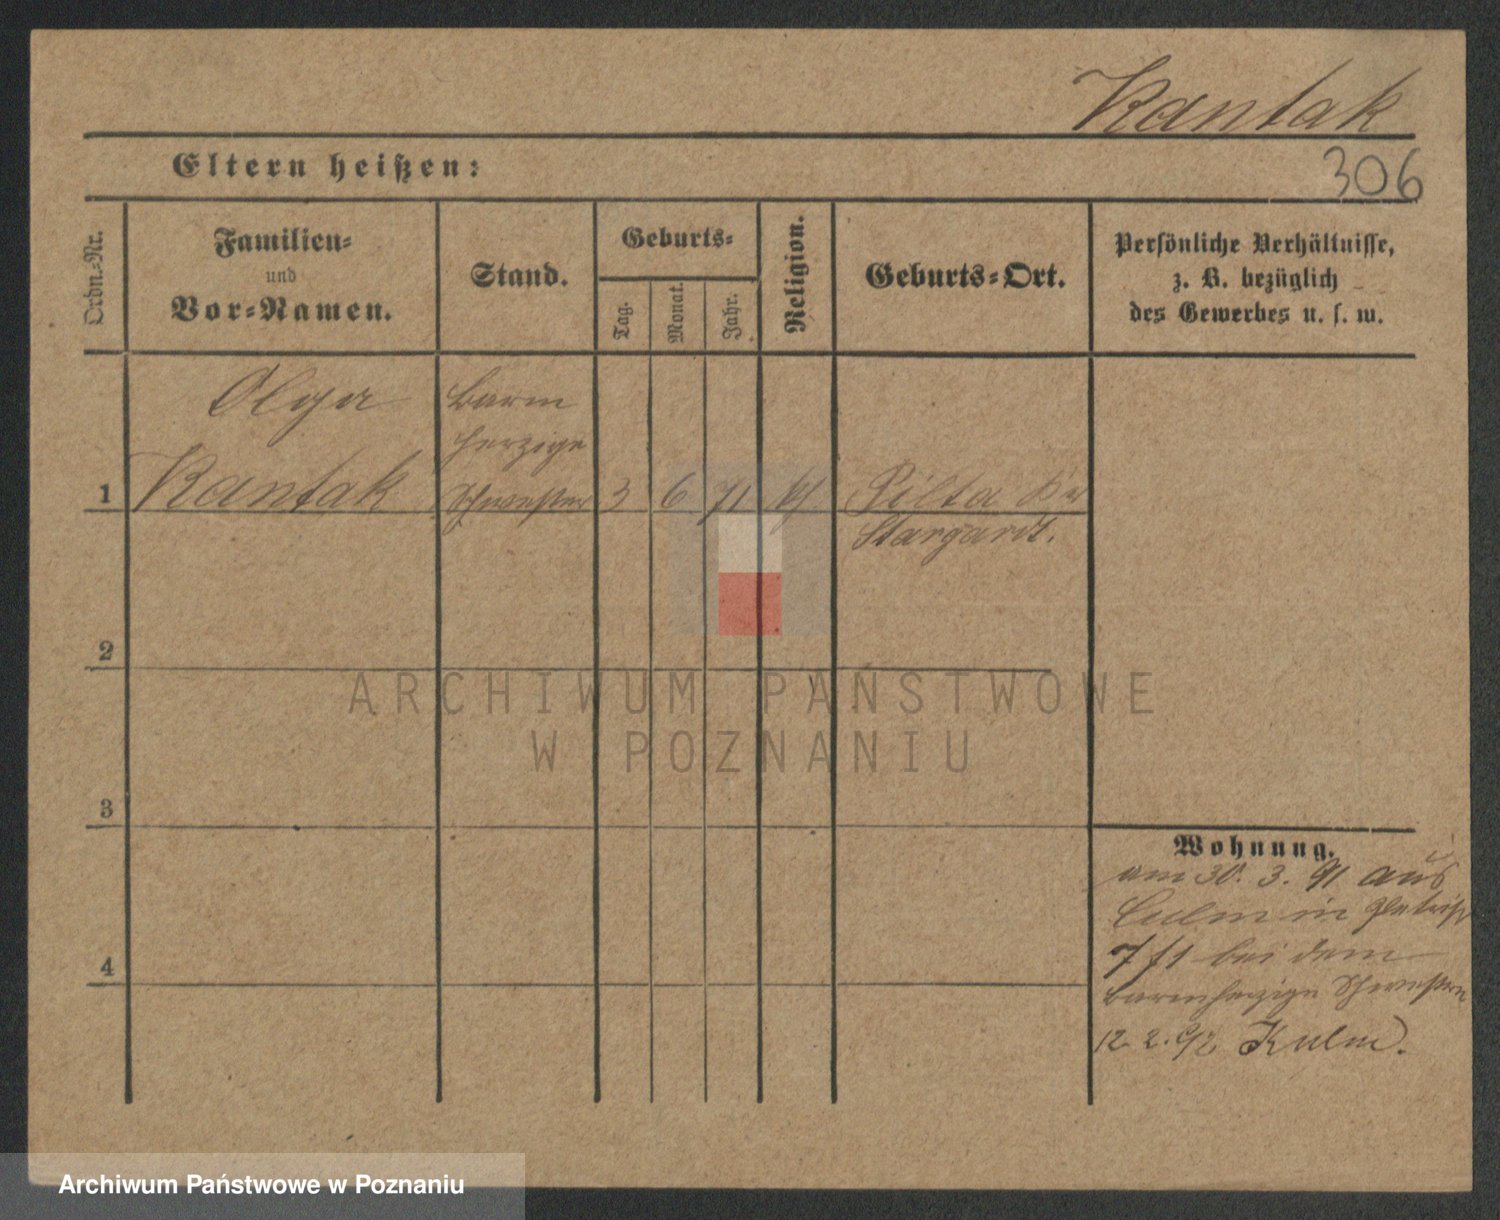 Kantak
Eltern heißen:
306
Ordn.-Nr.
Familien-
und
Vor-Namen.
Stand.
Geburts-
Tag.
Monat.
Jahr.
Religion.
Geburts-Ort.
Persönliche Verhältnisse,
z. B. bezüglich
des Gewerbes u. s. w.
Olga
barm
herzige
1 Kantak Schwester 3 6 71 Pilla Kr
Stargardt.
2
ARCHIWUM PAŃSTWOWE
W POZNANIU
3
Wohnung.
am 30. 3. 91 aus
Culm in
7/f1 bei dem
barmherzige Schwestern
12. 2. 92 Kulm.
4
Archiwum Państwowe w Poznaniu